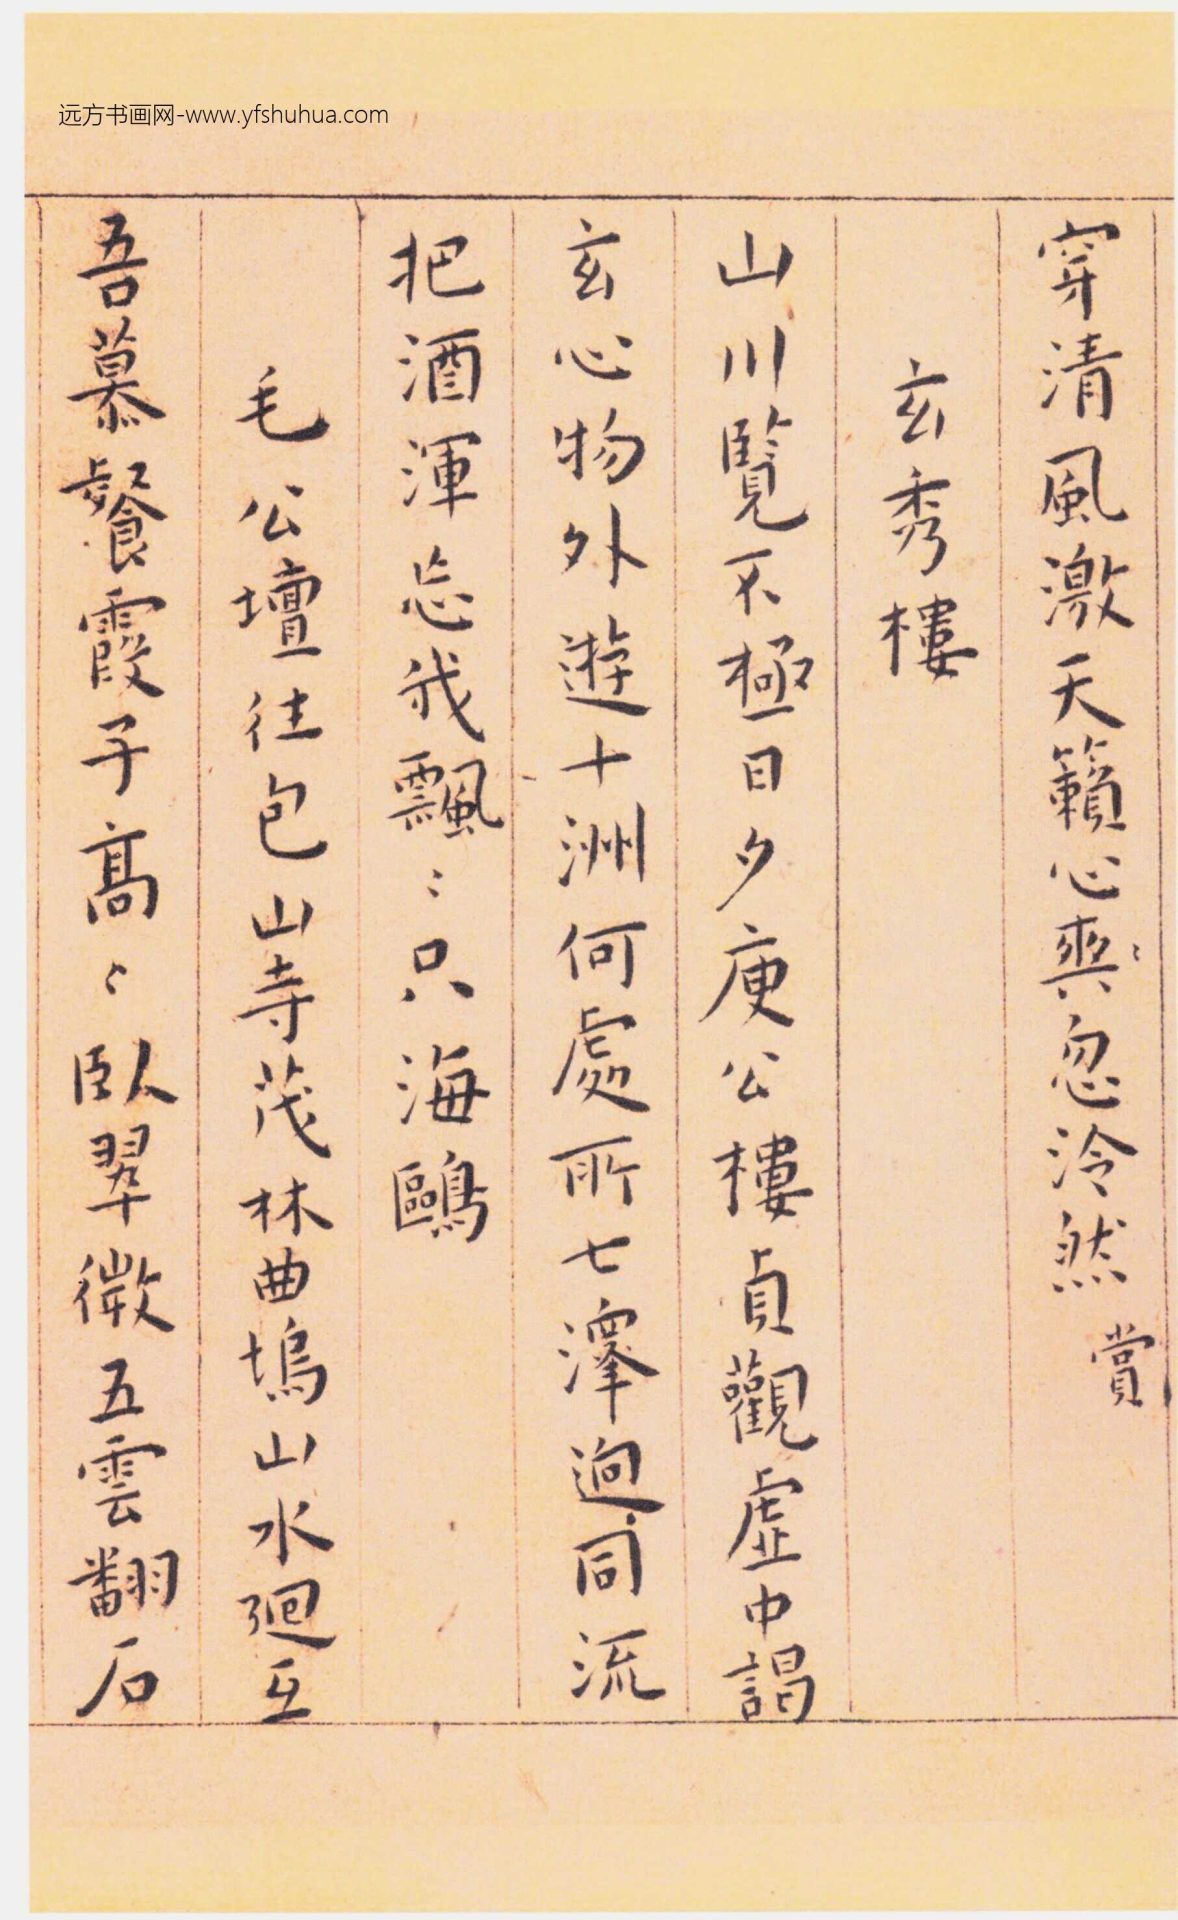 远方书画网-www.yfshuhua.com
穿清風激天籟心與〻忽泠然賞
玄秀樓
山川覽不極日夕庾公樓貞觀虛中謁
玄心物外遊十洲何處所七澤迥同流
把酒渾忘我飄〻只海鷗
毛公壇往包山寺茂林曲塢山水迴互
吾慕餐霞子高〻臥翠微五雲翻石